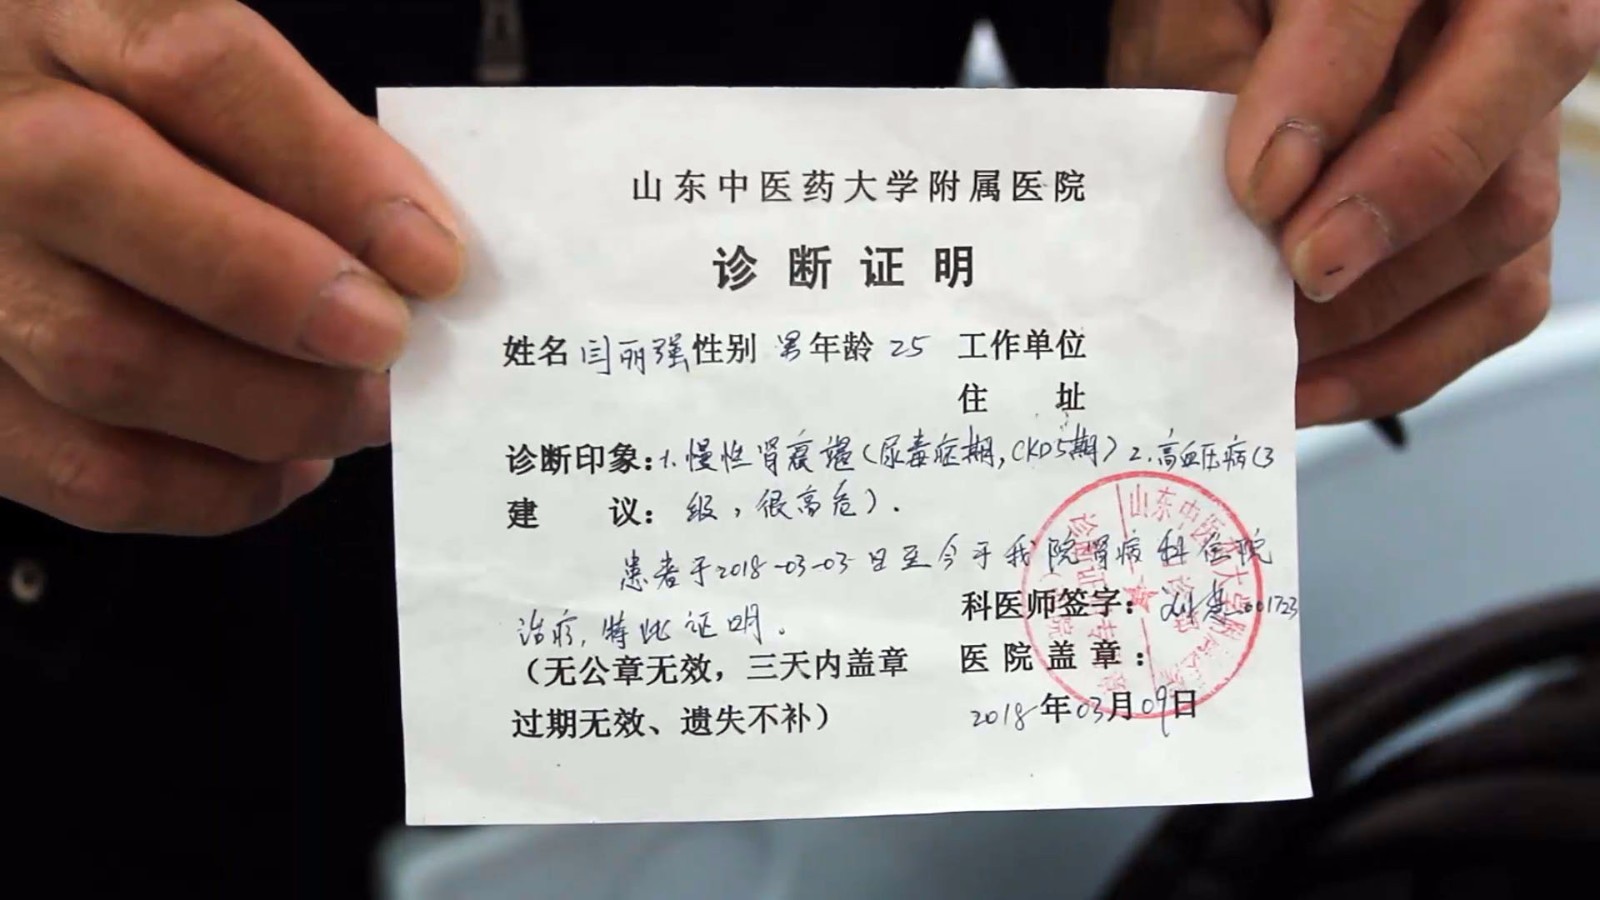 山东中医药大学附属医院
诊断证明
姓名 闫丽强 性别 男 年龄 25 工作单位
住 址
诊断印象：1.慢性肾衰竭（尿毒症期，CKD5期）2.高血压病（3
建 议： 级，很高危）.
患者于2018-03-03日至今于我院肾病科住院
科医师签字： 001723
治疗，特此证明。
（无公章无效，三天内盖章 医院盖章：
过期无效、遗失不补） 2018年03月09日
山东中医药大学附属医院